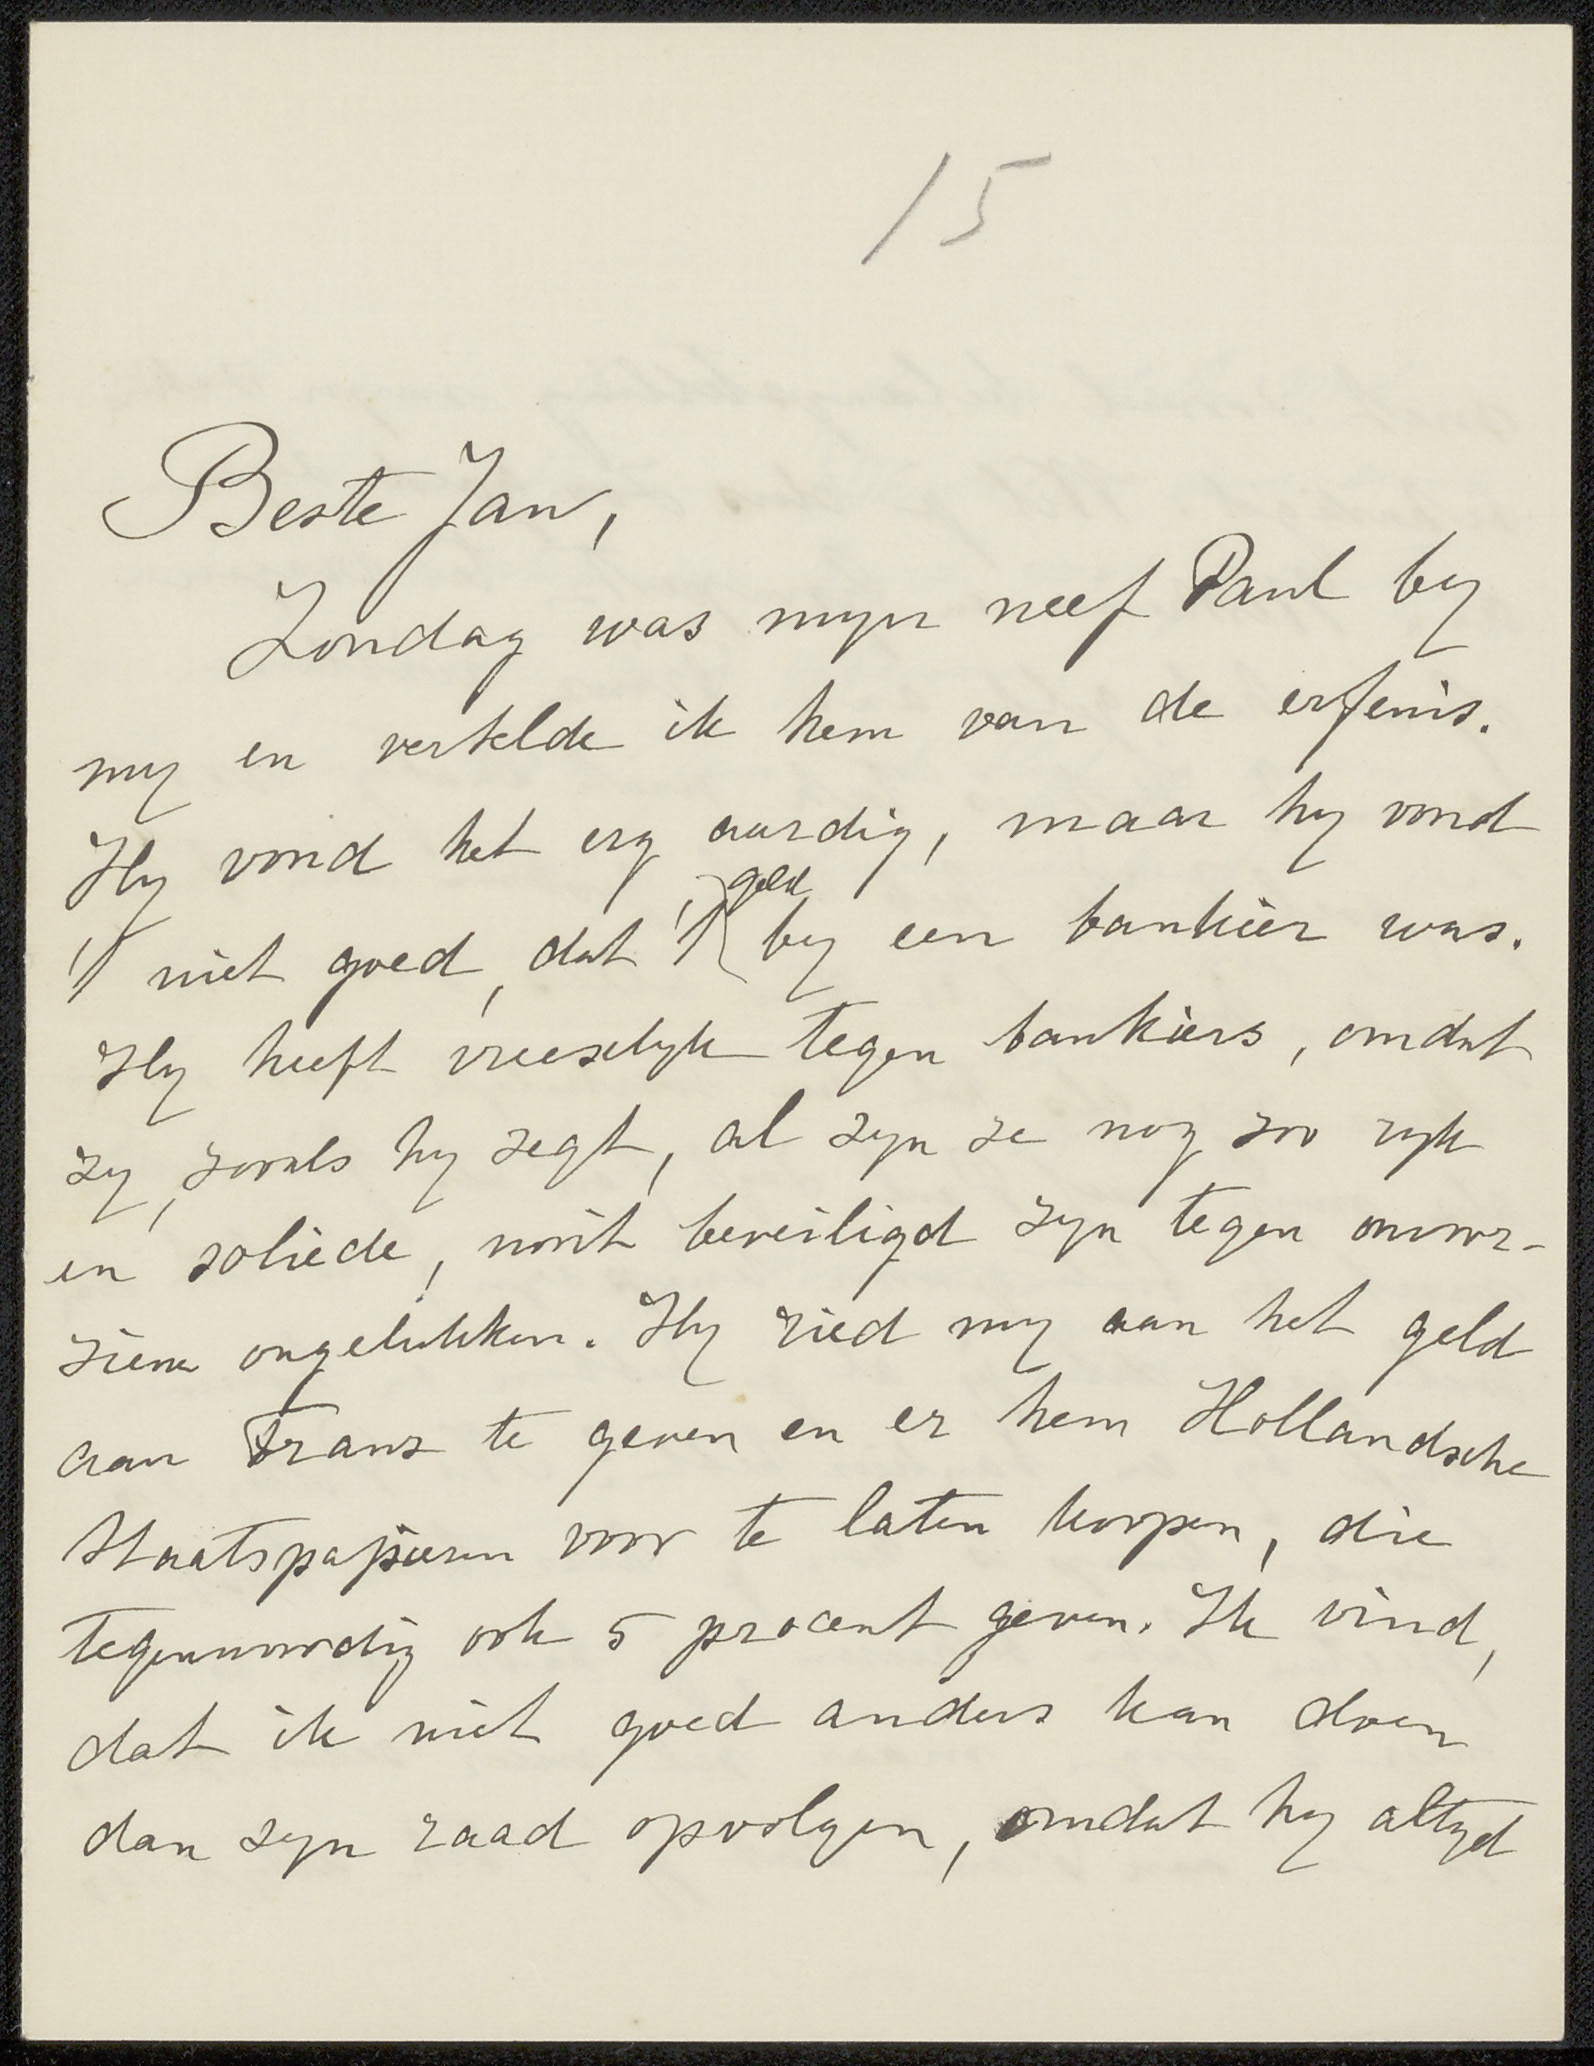 15
Beste Jan,
Zondag was myn neef Paul by
my en vertelde ik hem van de erfenis.
Hy vond het erg aardig, maar hy vond
't niet goed, dat 't geld by een bankier was.
Hy heeft vreeselyk tegen bankiers, omdat
zy, zooals hy zegt, al zyn ze nog zoo ryk
en soliede, nooit beveiligd zyn tegen onvoor-
ziene ongelukken. Hy ried my aan het geld
aan Frans te geven en er hem Hollandsche
Staatspapieren voor te laten koopen, die
tegenwoordig ook 5 procent geven. Ik vind,
dat ik niet goed anders kan doen
dan zyn raad opvolgen, omdat hy altyd